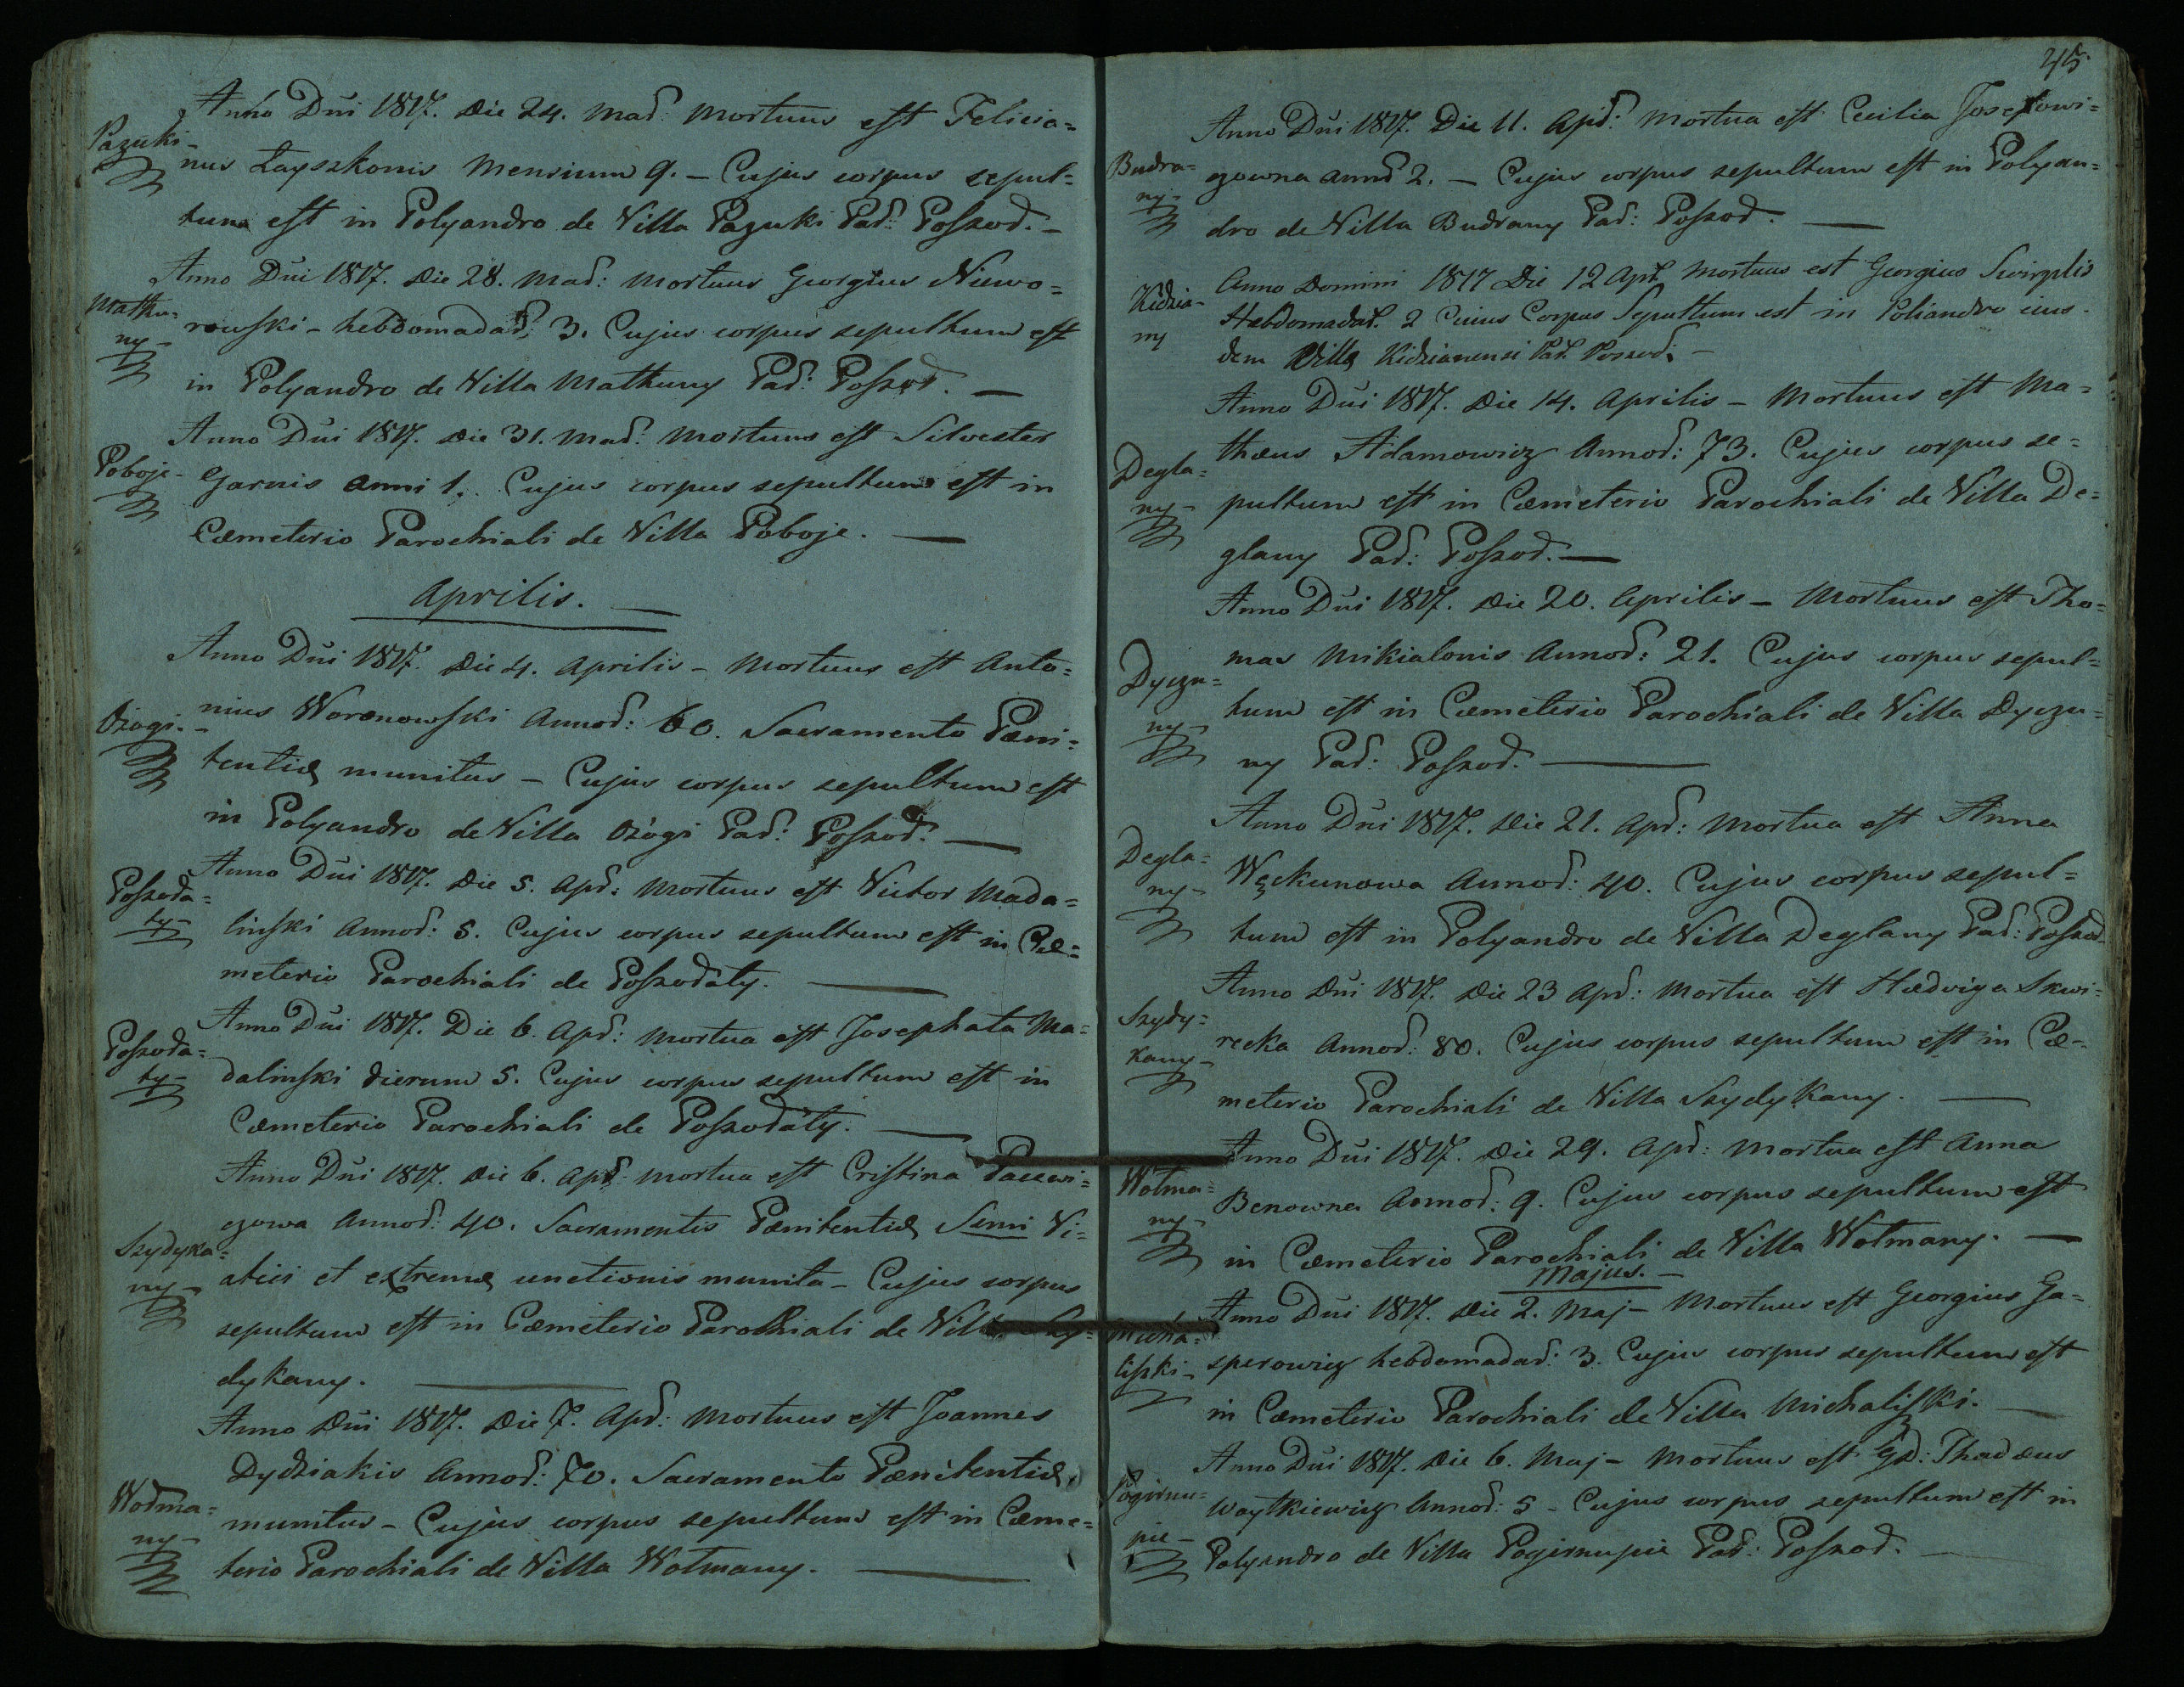 Anno Dni 1817. Die 24. Mad: Mortuus est Felicia=
Pazuki- nus Łayszkonis Mensium 9. – Cujus corpus sepul=
tum est in Polyandro de Villa Pazuki Pad: Poszod. –
Anno Dni 1817. Die 28. Mad: Mortuus Georgius Niewo=
Mathu=
ny- rowski – hebdomadad: 3. Cujus corpus sepultum est
in Polyandro de Villa Mathuny Pad: Poszod. –
Anno Dni 1817. Die 31. Mad: Mortuus est Silvester
Poboje- Garnis anni 1. Cujus corpus sepultum est in
Cæmeterio Parochiali de Villa Poboje. –
Aprilis. –
Anno Dni 1817. Die 4. Aprilis – Mortuus est Anto=
Ożogi- nius Woronowski Annod: 60. Sacramento Pæni=
tentiæ munitus – Cujus corpus sepultum est
in Polyandro de Villa Ożogi Pad: Poszod. –
Anno Dni 1817. Die 5. Apd: Mortuus est Victor Mada=
Poszoda=
ty- linski Annod: 5. Cujus corpus sepultum est in Cæ=
meterio Parochiali de Poszodaty. –
Anno Dni 1817. Die 6. Apd: Mortua est Josephata Ma=
Poszoda=
ty- dalinski dierum 5. Cujus corpus sepultum est in
Cæmeterio Parochiali de Poszodaty. –
Anno Dni 1817. Die 6. Apd: mortua est Cristina
czowa Annod: 40. Sacramentis Pænitentiæ Semi Vi=
Szydyka=
ny- atici et extremæ unctionis munita – Cujus corpus
sepultum est in Cæmeterio Parochiali de Villa Szy=
dykany. –
Anno Dni 1817. Die 7. Apd: Mortuus est Joannes
Dydziakis Annod: 70. Sacramento Pænitentiæ
Wodma=
ny- munitus – Cujus corpus sepultum est in Cæme=
terio Parochiali de Villa Wotmany. –
45.
Anno Dni 1817. Die 11. Apd: Mortua est Cecilia Josefowi=
Budra=
ny- czowna annod 2. – Cujus corpus sepultum est in Polyan=
dro de Villa Budrany Pad: Poszod. –
Anno Domini 1817 Die 12 Apd. Mortuus est Georgius Swirplis
Kidzia-
ny Hebdomadad. 2 Cuius Corpus Sepultum est in Poliandro eius-
dem Villæ Kidzianensi Pad. Poszod: –
Anno Dni 1817. Die 14. Aprilis – Mortuus est Ma=
thæus Adamowicz Annod: 73. Cujus corpus se=
Degla=
ny- pultum est in Cæmeterio Parochiali de Villa De=
glany Pad: Poszod. –
Anno Dni 1817. Die 20. Aprilis – Mortuus est Tho=
mas Mikialonis Annod: 21. Cujus corpus sepul=
Dyczu=
ny- tum est in Cæmeterio Parochiali de Villa Dyczu=
ny Pad: Poszod. –
Anno Dni 1817. Die 21. Apd: Mortua est Anna
Degla=
ny- Węckunowa Annod: 40. Cujus corpus sepul=
tum est in Polyandro de Villa Deglany Pad: Poszod
Anno Dni 1817. Die 23 Apd: Mortua est Hedviga Skwi=
Szydy=
kany- recka Annod: 80. Cujus corpus sepultum est in Cæ-
meterio Parochiali de Villa Szydykany. –
Anno Dni 1817. Die 29. Apd: Mortua est Anna
Wotma=
ny- Benowna Annod: 9. Cujus corpus sepultum est
in Cæmeterio Parochiali de Villa Wotmany. –
Majus. –
Anno Dni 1817. Die 2. Maj – Mortuus est Georgius Ga=
Micha=
liszki- sperowicz hebdomadad: 3. Cujus corpus sepultum est
in Cæmeterio Parochiali de Villa Michaliszki. –
Anno Dni 1817. Die 6. Maj – Mortuus est Gd: Thadæus
Pogirnu=
pie- Woytkiewicz Annod: 5 – Cujus corpus sepultum est in
Polyandro de Villa Pogirnupie Pad: Poszod. –